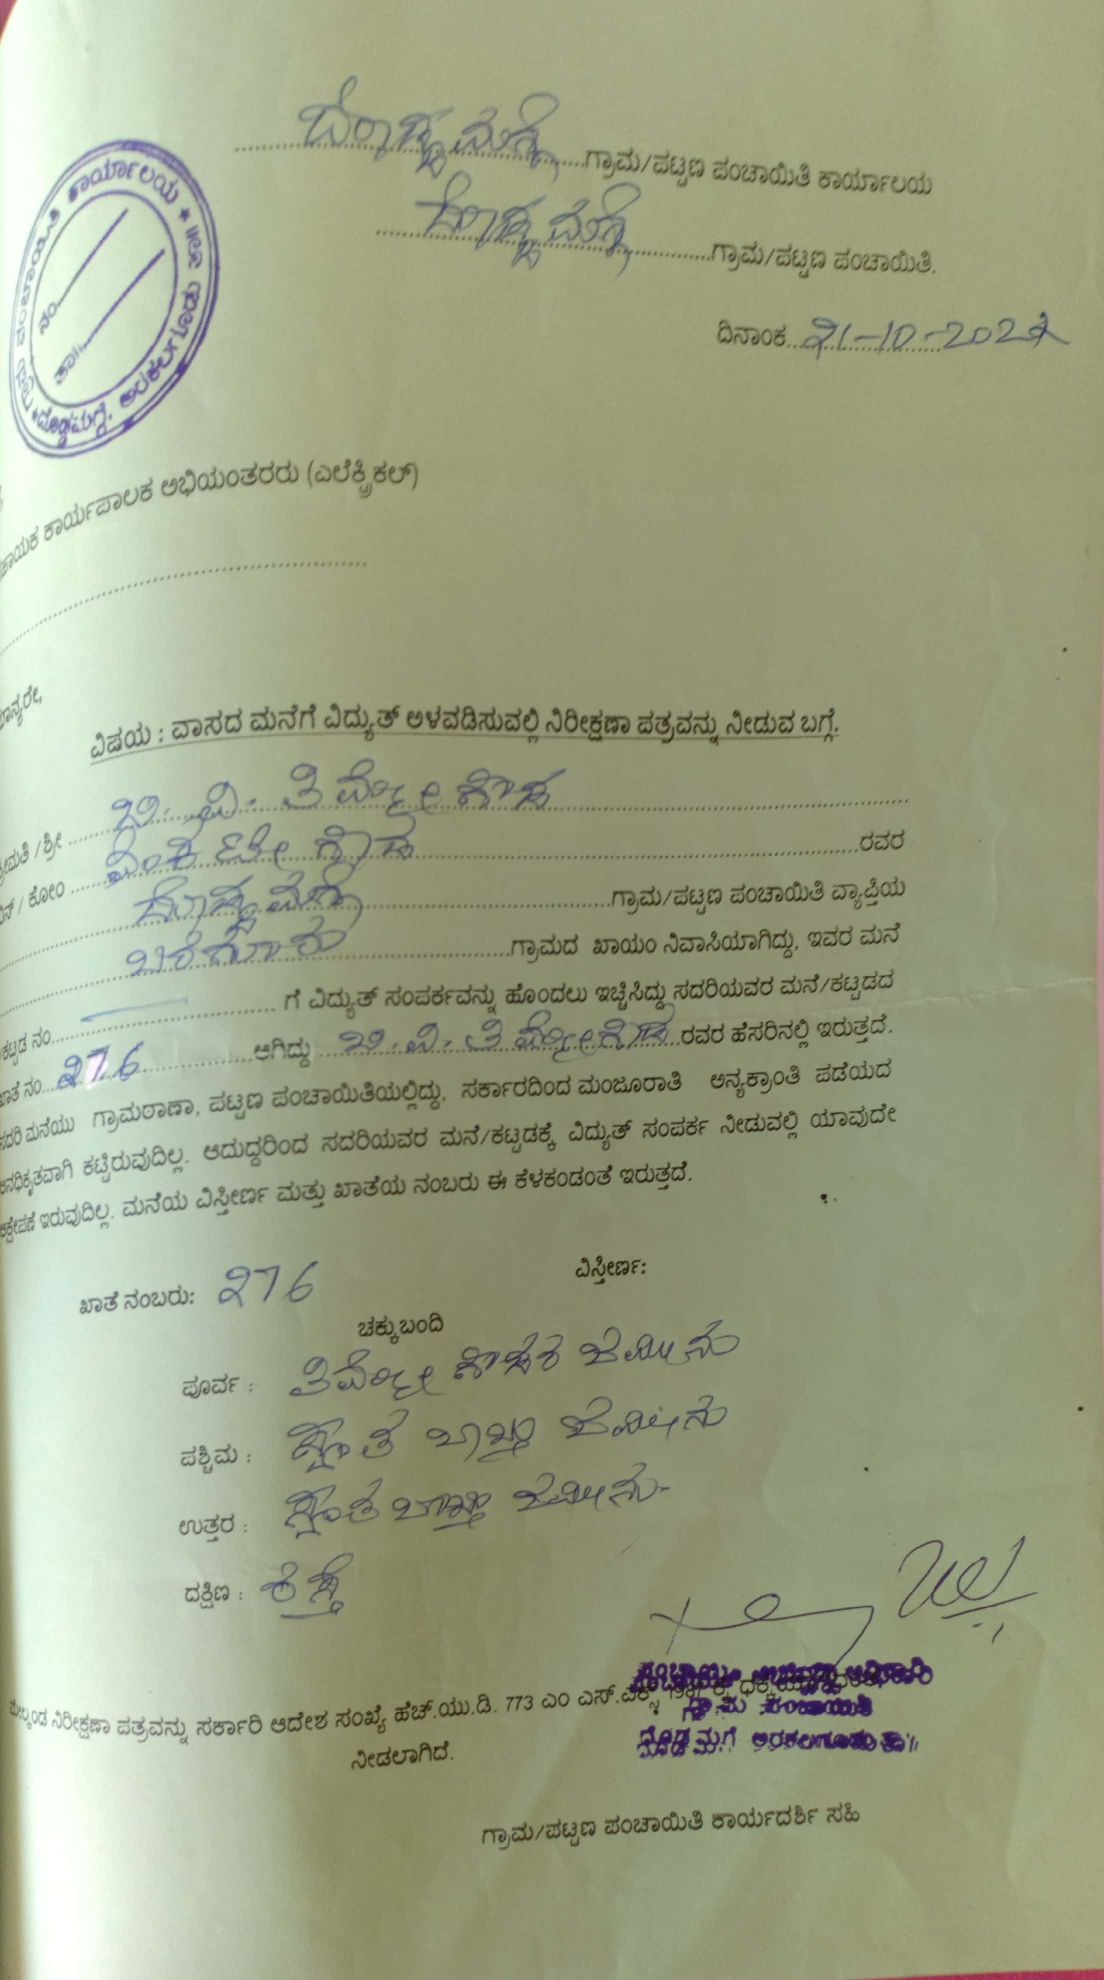 ದೊಡ್ಡಮಗ್ಗೆ ಗ್ರಾಮ/ಪಟ್ಟಣ ಪಂಚಾಯಿತಿ ಕಾರ್ಯಾಲಯ
ದೊಡ್ಡಮಗ್ಗೆ ಗ್ರಾಮ/ಪಟ್ಟಣ ಪಂಚಾಯಿತಿ.
ಪಂಚಾಯಿತಿ ಕಾರ್ಯಾಲಯ
ದೊಡ್ಡಮಗ್ಗೆ, ಅರಕಲಗೂಡು
ನಂ.
ತಾ||
ದಿನಾಂಕ 21-10-202
ಕಾರ್ಯಪಾಲಕ ಅಭಿಯಂತರರು (ಎಲೆಕ್ಟ್ರಿಕಲ್)
ವಿಷಯ : ವಾಸದ ಮನೆಗೆ ವಿದ್ಯುತ್ ಅಳವಡಿಸುವಲ್ಲಿ ನಿರೀಕ್ಷಣಾ ಪತ್ರವನ್ನು ನೀಡುವ ಬಗ್ಗೆ.
ಬಿ. ವಿ. ತಿಮ್ಮೇಗೌಡ
ಕೋಂ ವೆಂಕಟೇಗೌಡ ರವರ
ದೊಡ್ಡಮಗ್ಗೆ ಗ್ರಾಮ/ಪಟ್ಟಣ ಪಂಚಾಯಿತಿ ವ್ಯಾಪ್ತಿಯ
ಗ್ರಾಮದ ಖಾಯಂ ನಿವಾಸಿಯಾಗಿದ್ದು, ಇವರ ಮನೆ
ಕಟ್ಟಡ ನಂ. ಗೆ ವಿದ್ಯುತ್ ಸಂಪರ್ಕವನ್ನು ಹೊಂದಲು ಇಚ್ಚಿಸಿದ್ದು ಸದರಿಯವರ ಮನೆ/ಕಟ್ಟಡದ
ಖಾತೆ ನಂ. 276 ಆಗಿದ್ದು ಬಿ. ವಿ. ತಿಮ್ಮೇಗೌಡ ರವರ ಹೆಸರಿನಲ್ಲಿ ಇರುತ್ತದೆ.
ಸದರಿ ಮನೆಯು ಗ್ರಾಮಠಾಣಾ, ಪಟ್ಟಣ ಪಂಚಾಯಿತಿಯಲ್ಲಿದ್ದು, ಸರ್ಕಾರದಿಂದ ಮಂಜೂರಾತಿ ಅನ್ಯಕ್ರಾಂತಿ ಪಡೆಯದ
ಅನಧಿಕೃತವಾಗಿ ಕಟ್ಟಿರುವುದಿಲ್ಲ. ಆದುದ್ದರಿಂದ ಸದರಿಯವರ ಮನೆ/ಕಟ್ಟಡಕ್ಕೆ ವಿದ್ಯುತ್ ಸಂಪರ್ಕ ನೀಡುವಲ್ಲಿ ಯಾವುದೇ
ಆಕ್ಷೇಪಣೆ ಇರುವುದಿಲ್ಲ. ಮನೆಯ ವಿಸ್ತೀರ್ಣ ಮತ್ತು ಖಾತೆಯ ನಂಬರು ಈ ಕೆಳಕಂಡಂತೆ ಇರುತ್ತದೆ.
ಖಾತೆ ನಂಬರು: 276 ವಿಸ್ತೀರ್ಣ:
ಚಕ್ಕುಬಂದಿ
ಪೂರ್ವ : ತಿಮ್ಮೇಗೌಡರ ಜಮೀನು
ಪಶ್ಚಿಮ : ಸ್ವಂತ ಬಾಬ್ತು ಜಮೀನು
ಉತ್ತರ : ಸ್ವಂತ ಬಾಬ್ತು ಜಮೀನು
ದಕ್ಷಿಣ : ರಸ್ತೆ
ಪಂಚಾಯಿತಿ ಅಭಿವೃದ್ಧಿ ಅಧಿಕಾರಿ
ಮೇಲ್ಕಂಡ ನಿರೀಕ್ಷಣಾ ಪತ್ರವನ್ನು ಸರ್ಕಾರಿ ಆದೇಶ ಸಂಖ್ಯೆ ಹೆಚ್.ಯು.ಡಿ. 773 ಎಂ ಎಸ್.ಎಕ್ಸ್ 1987
ಗ್ರಾಮ ಪಂಚಾಯಿತಿ
ದೊಡ್ಡಮಗ್ಗೆ ಅರಕಲಗೂಡು ತಾ||
ನೀಡಲಾಗಿದೆ.
ಗ್ರಾಮ/ಪಟ್ಟಣ ಪಂಚಾಯಿತಿ ಕಾರ್ಯದರ್ಶಿ ಸಹಿ